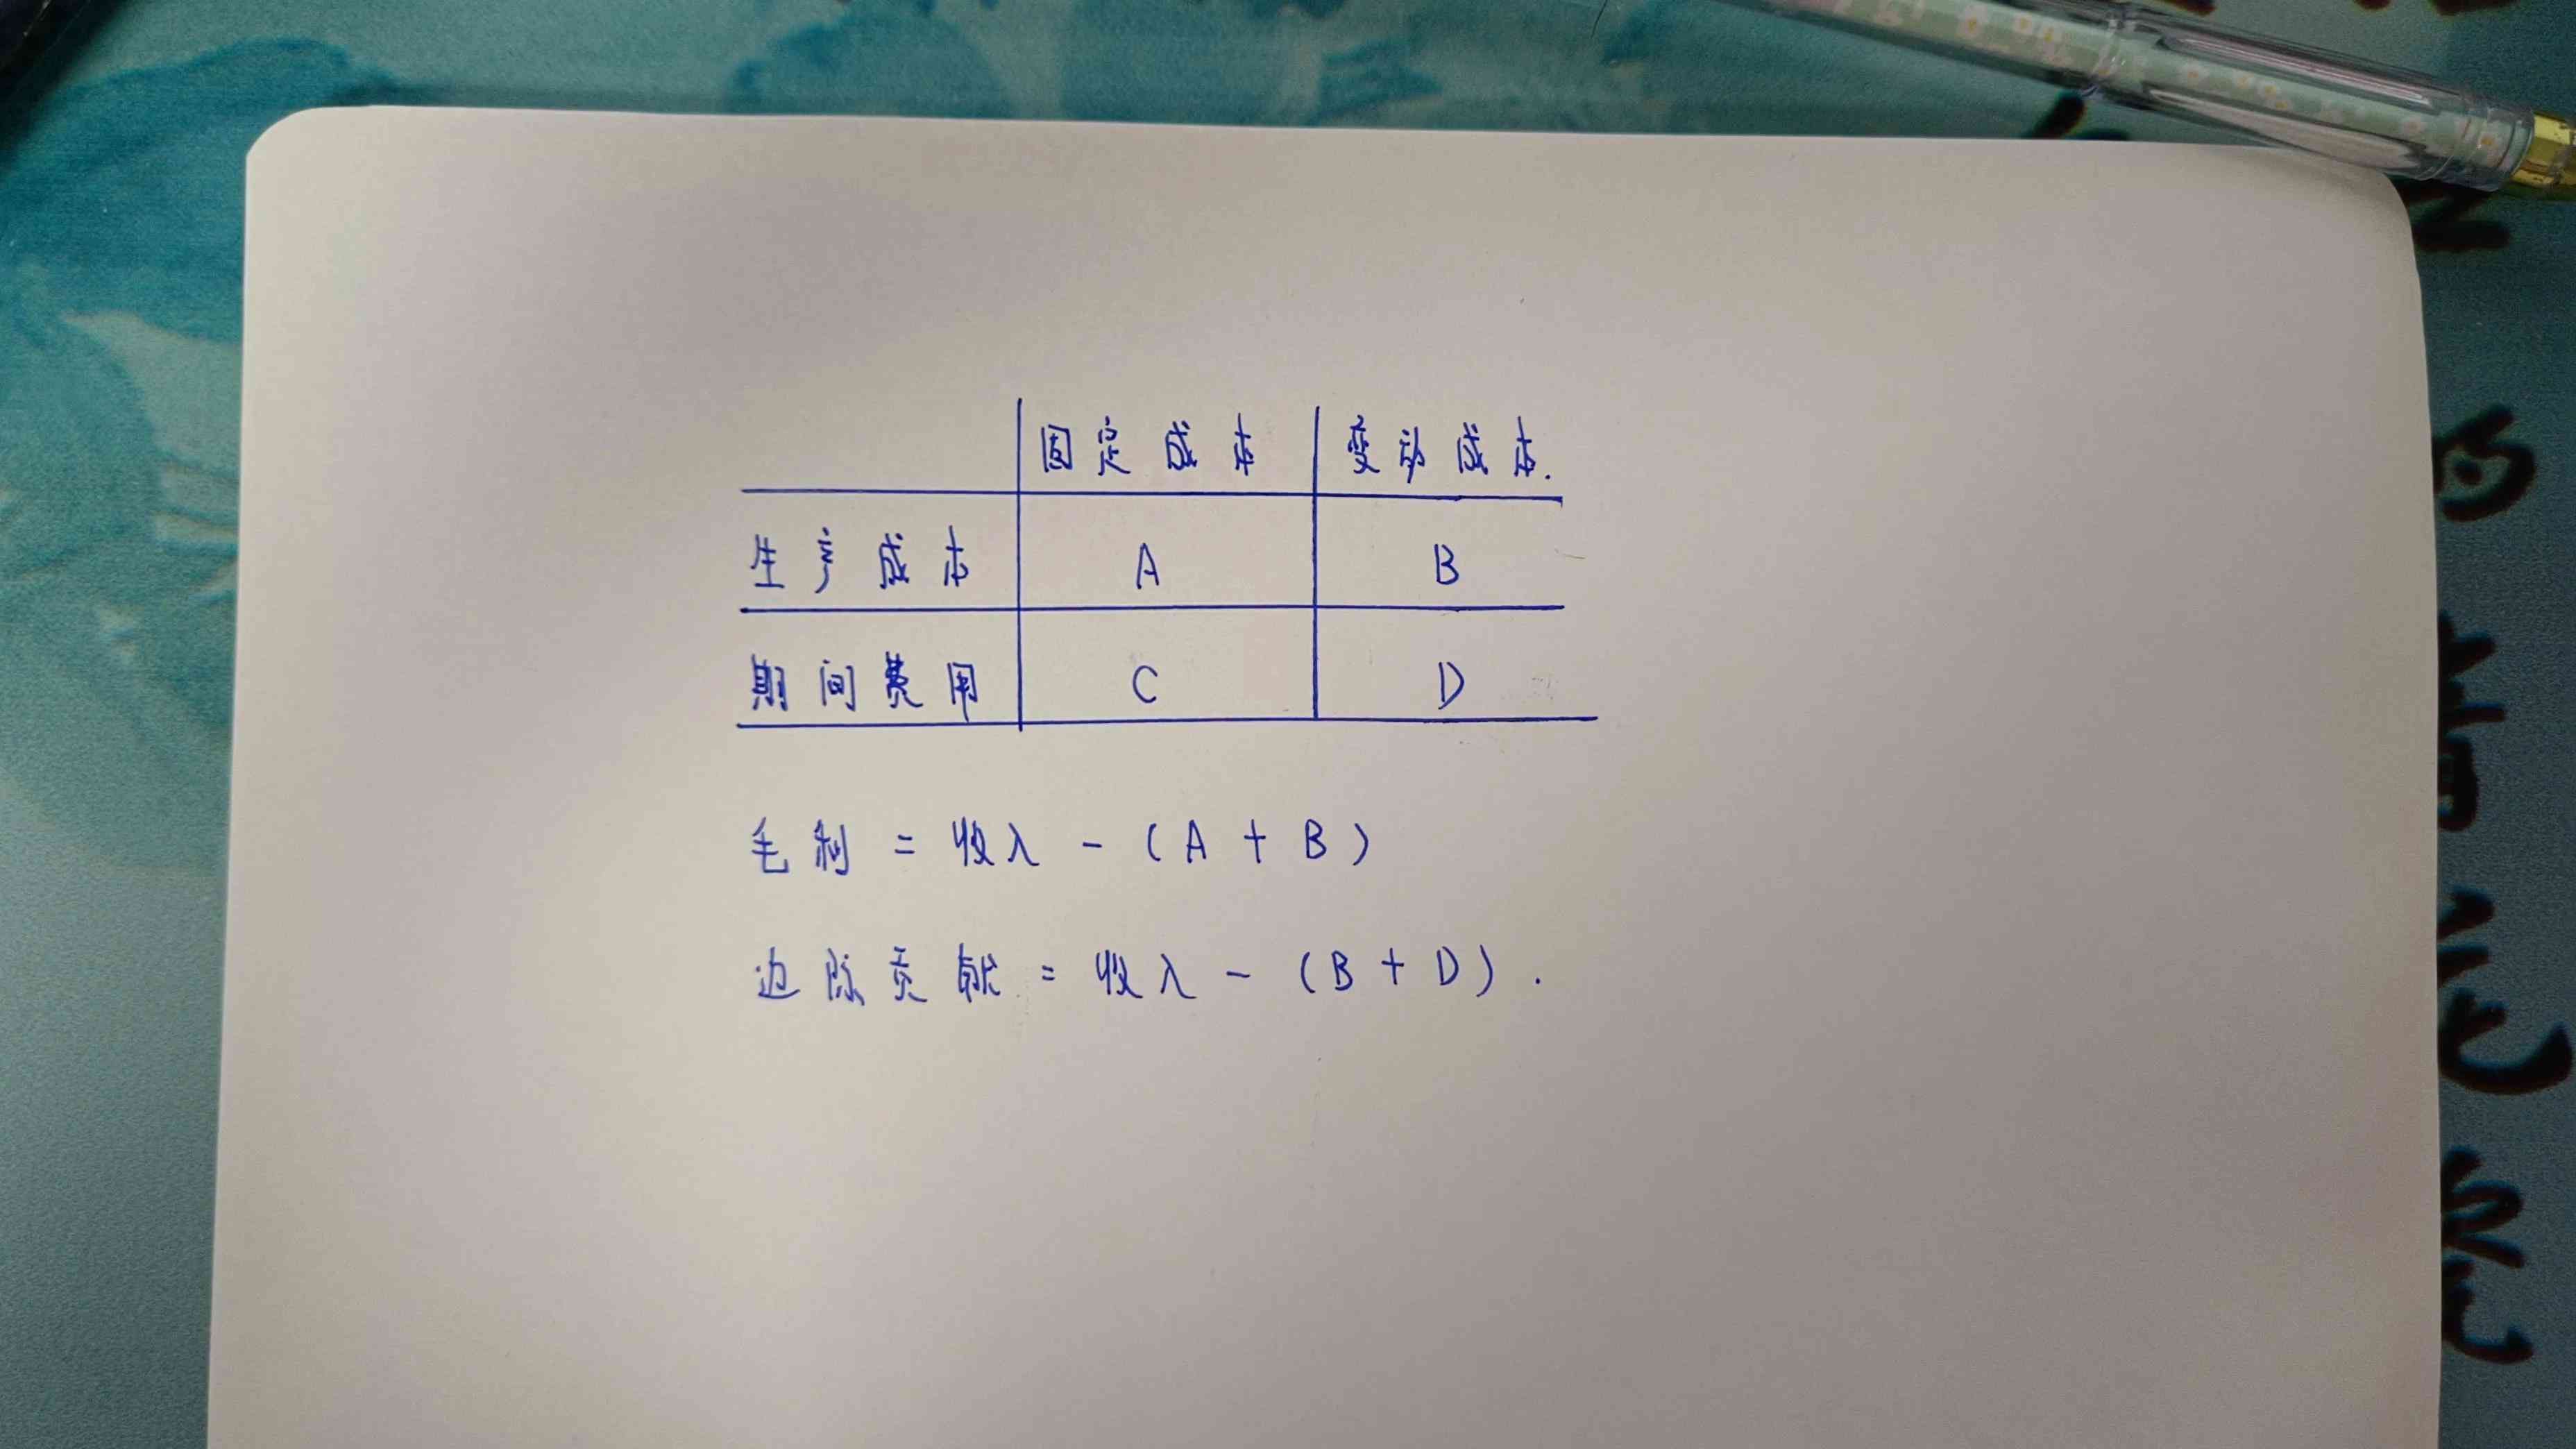 固定成本 变动成本.
生产成本 A B
期间费用 C D
毛利 = 收入 - (A + B)
边际贡献 = 收入 - (B + D).